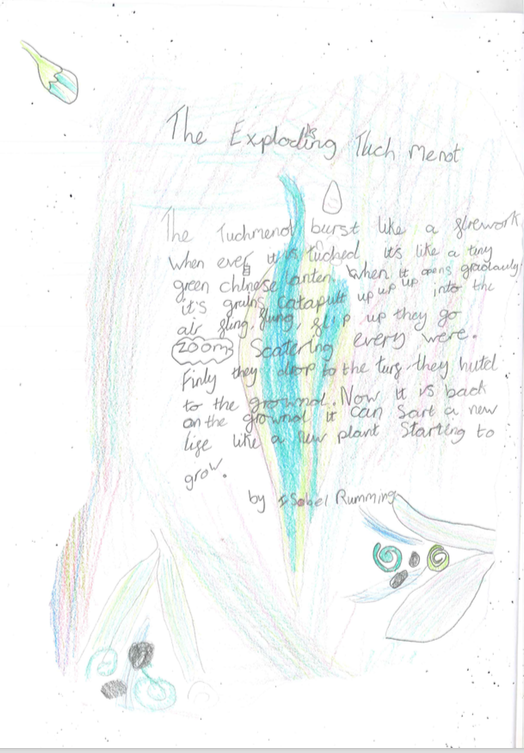 The Exploding Tuch menot
The Tuchmenot burst like a firework
when ever it is tuched it's like a tiny
green chinese lanten. When it opens gradauly
it's grains catapult up up up into the
air fling, flung, flip up they go
zoom Scatering every were.
Finly they drop to the turf they hutel
to the grownd. Now it is back
on the grownd it can Sart a new
life like a new plant Starting to
grow.
by iSobel Rumming